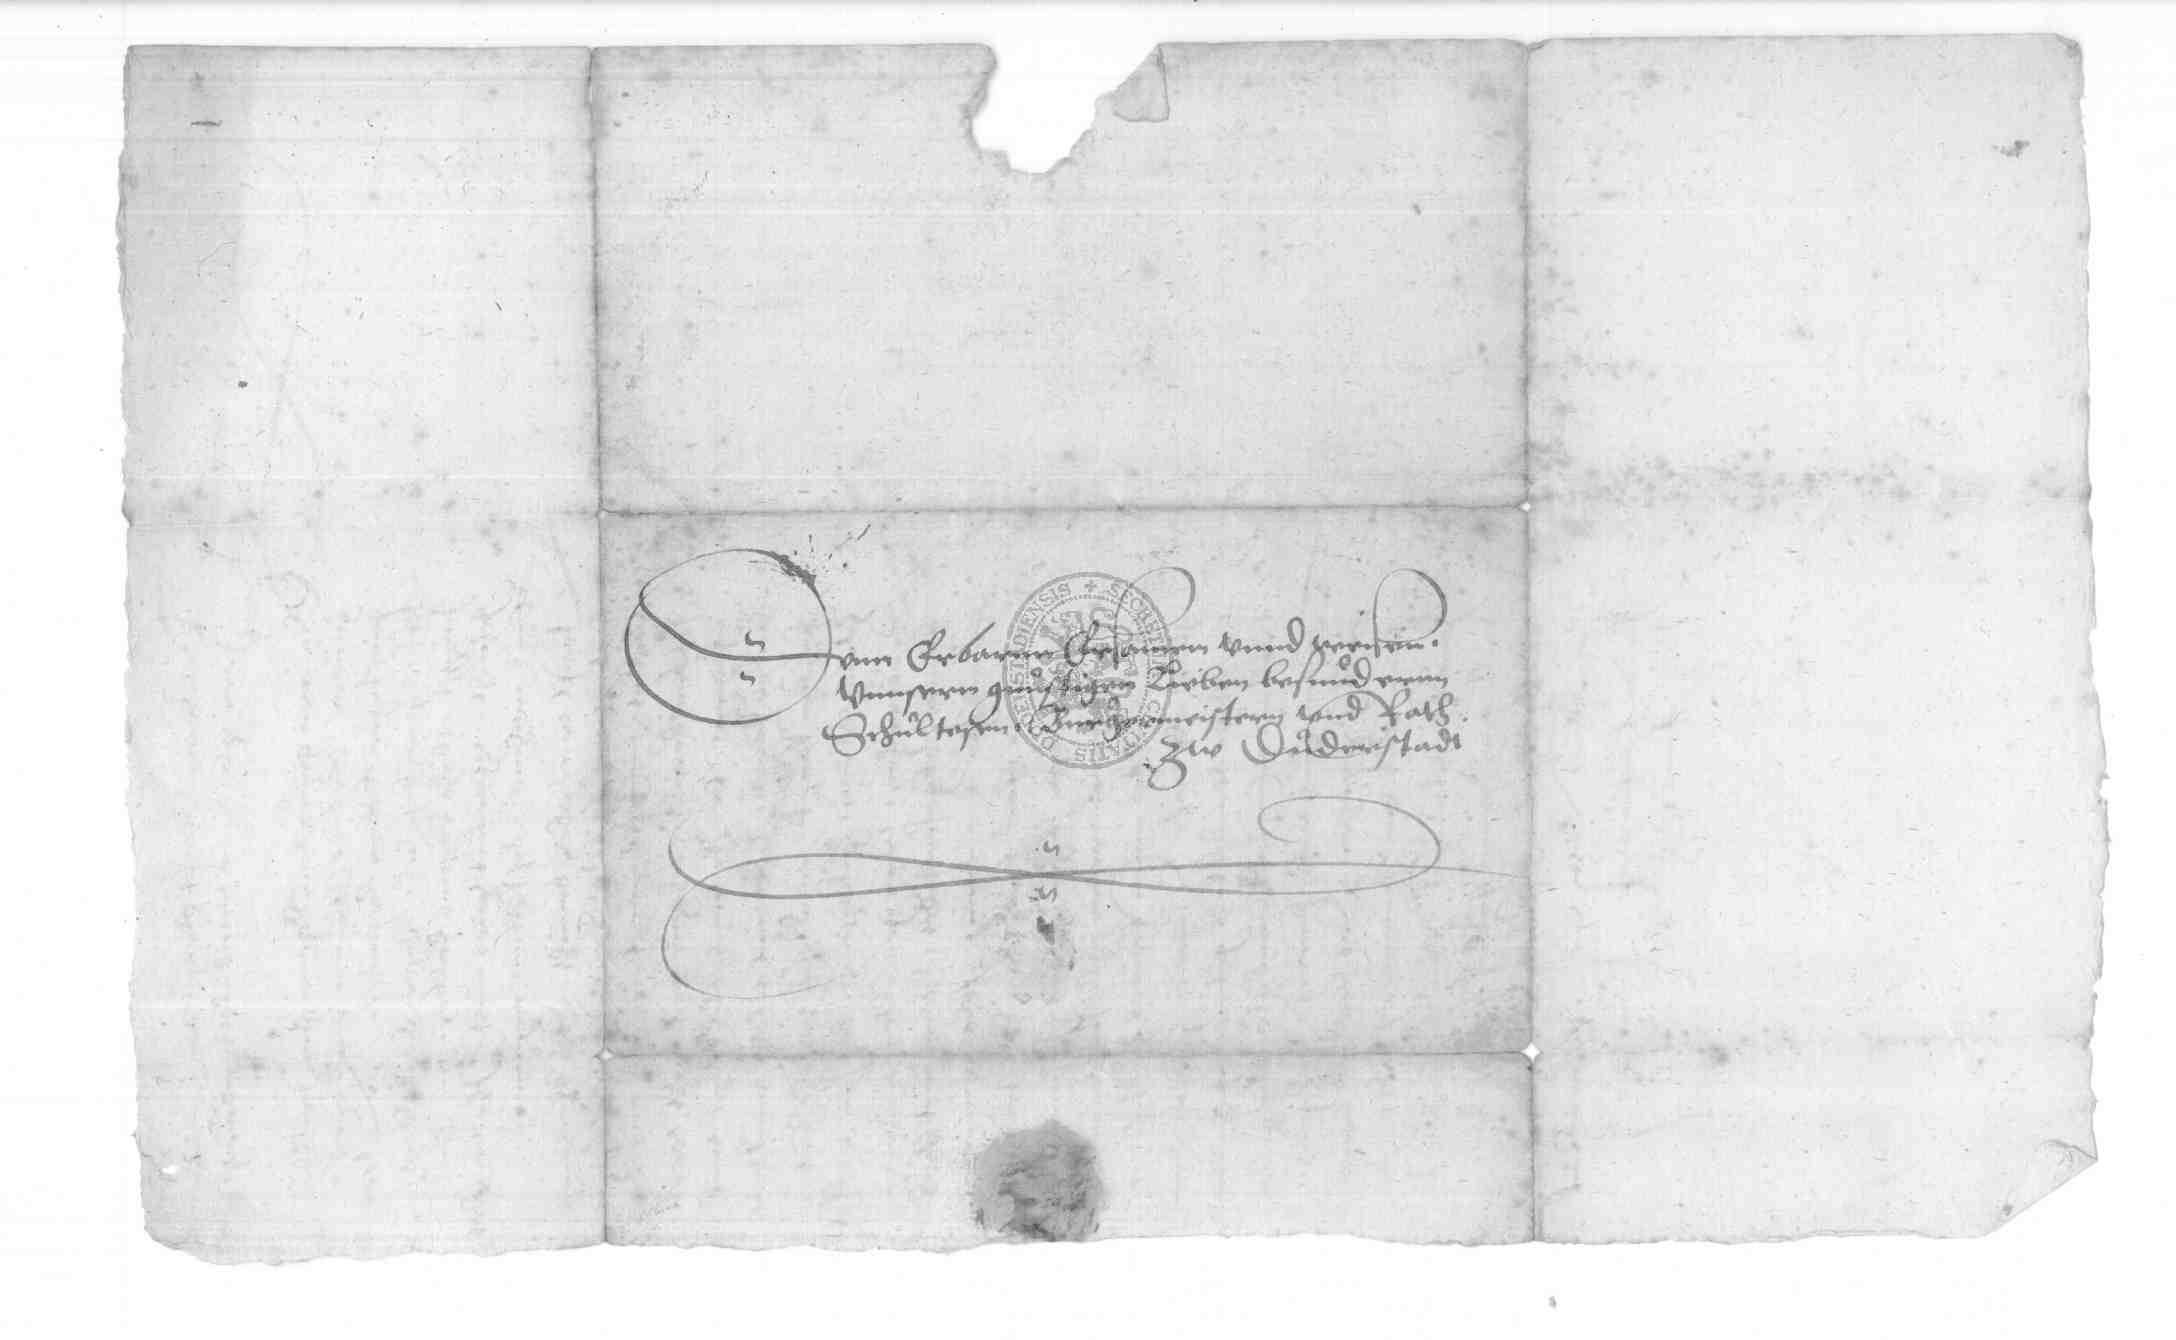 Denn Erbarnn Ersamen vnnd weisen.
Vnnsern günstigen Lieben besundernn
Schultesen. Burgermeistern vnd Rath.
Zw Duderstadt
SECRETUM CIVITATIS DUDERSTADIENSIS